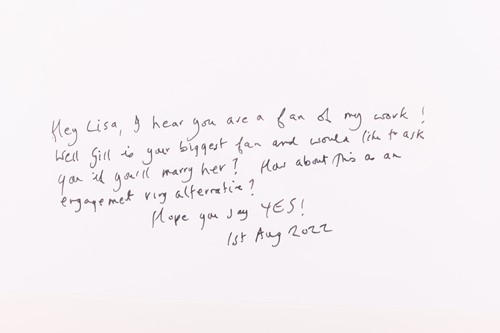 Hey Lisa, I hear you are a fan of my work!
Well Gill is your biggest fan and would like to ask
you if you'll marry her? How about this as an
engagement ring alternative?
Hope you say YES!
1st Aug 2022